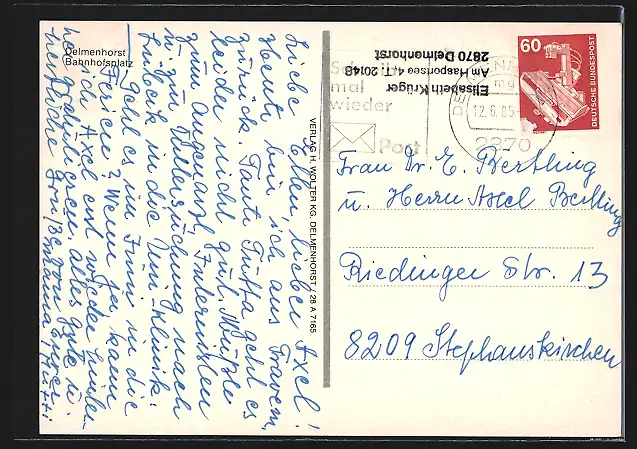 Delmenhorst
Bahnhofsplatz
Liebe Ellen, lieber Axel!
Heute bin ich aus Travem.
zurück. Tante Jutta geht es
leider nicht gut. Mußte
zum Augenarzt, Internisten
u. zur Untersuchung nach
Lübeck in die Uni Klinik.
geht es im Juni in die
Ferien? Wenn ja, kann
ich Axel erst wieder hinter-
her gratulieren. Alles Gute u.
herzliche
VERLAG H. WOLTER KG. DELMENHORST / 28 A 7165
Elisabeth Krüger
Am Hasportsee 4 · T. 20148
2870 Delmenhorst
Schreib
mal
wieder
Post
12.6.85
2870
60
DEUTSCHE BUNDESPOST
Frau Dr. E. Bertling
u. Herrn Axel Bertling
Riedinger Str. 13
8209 Stephanskirchen